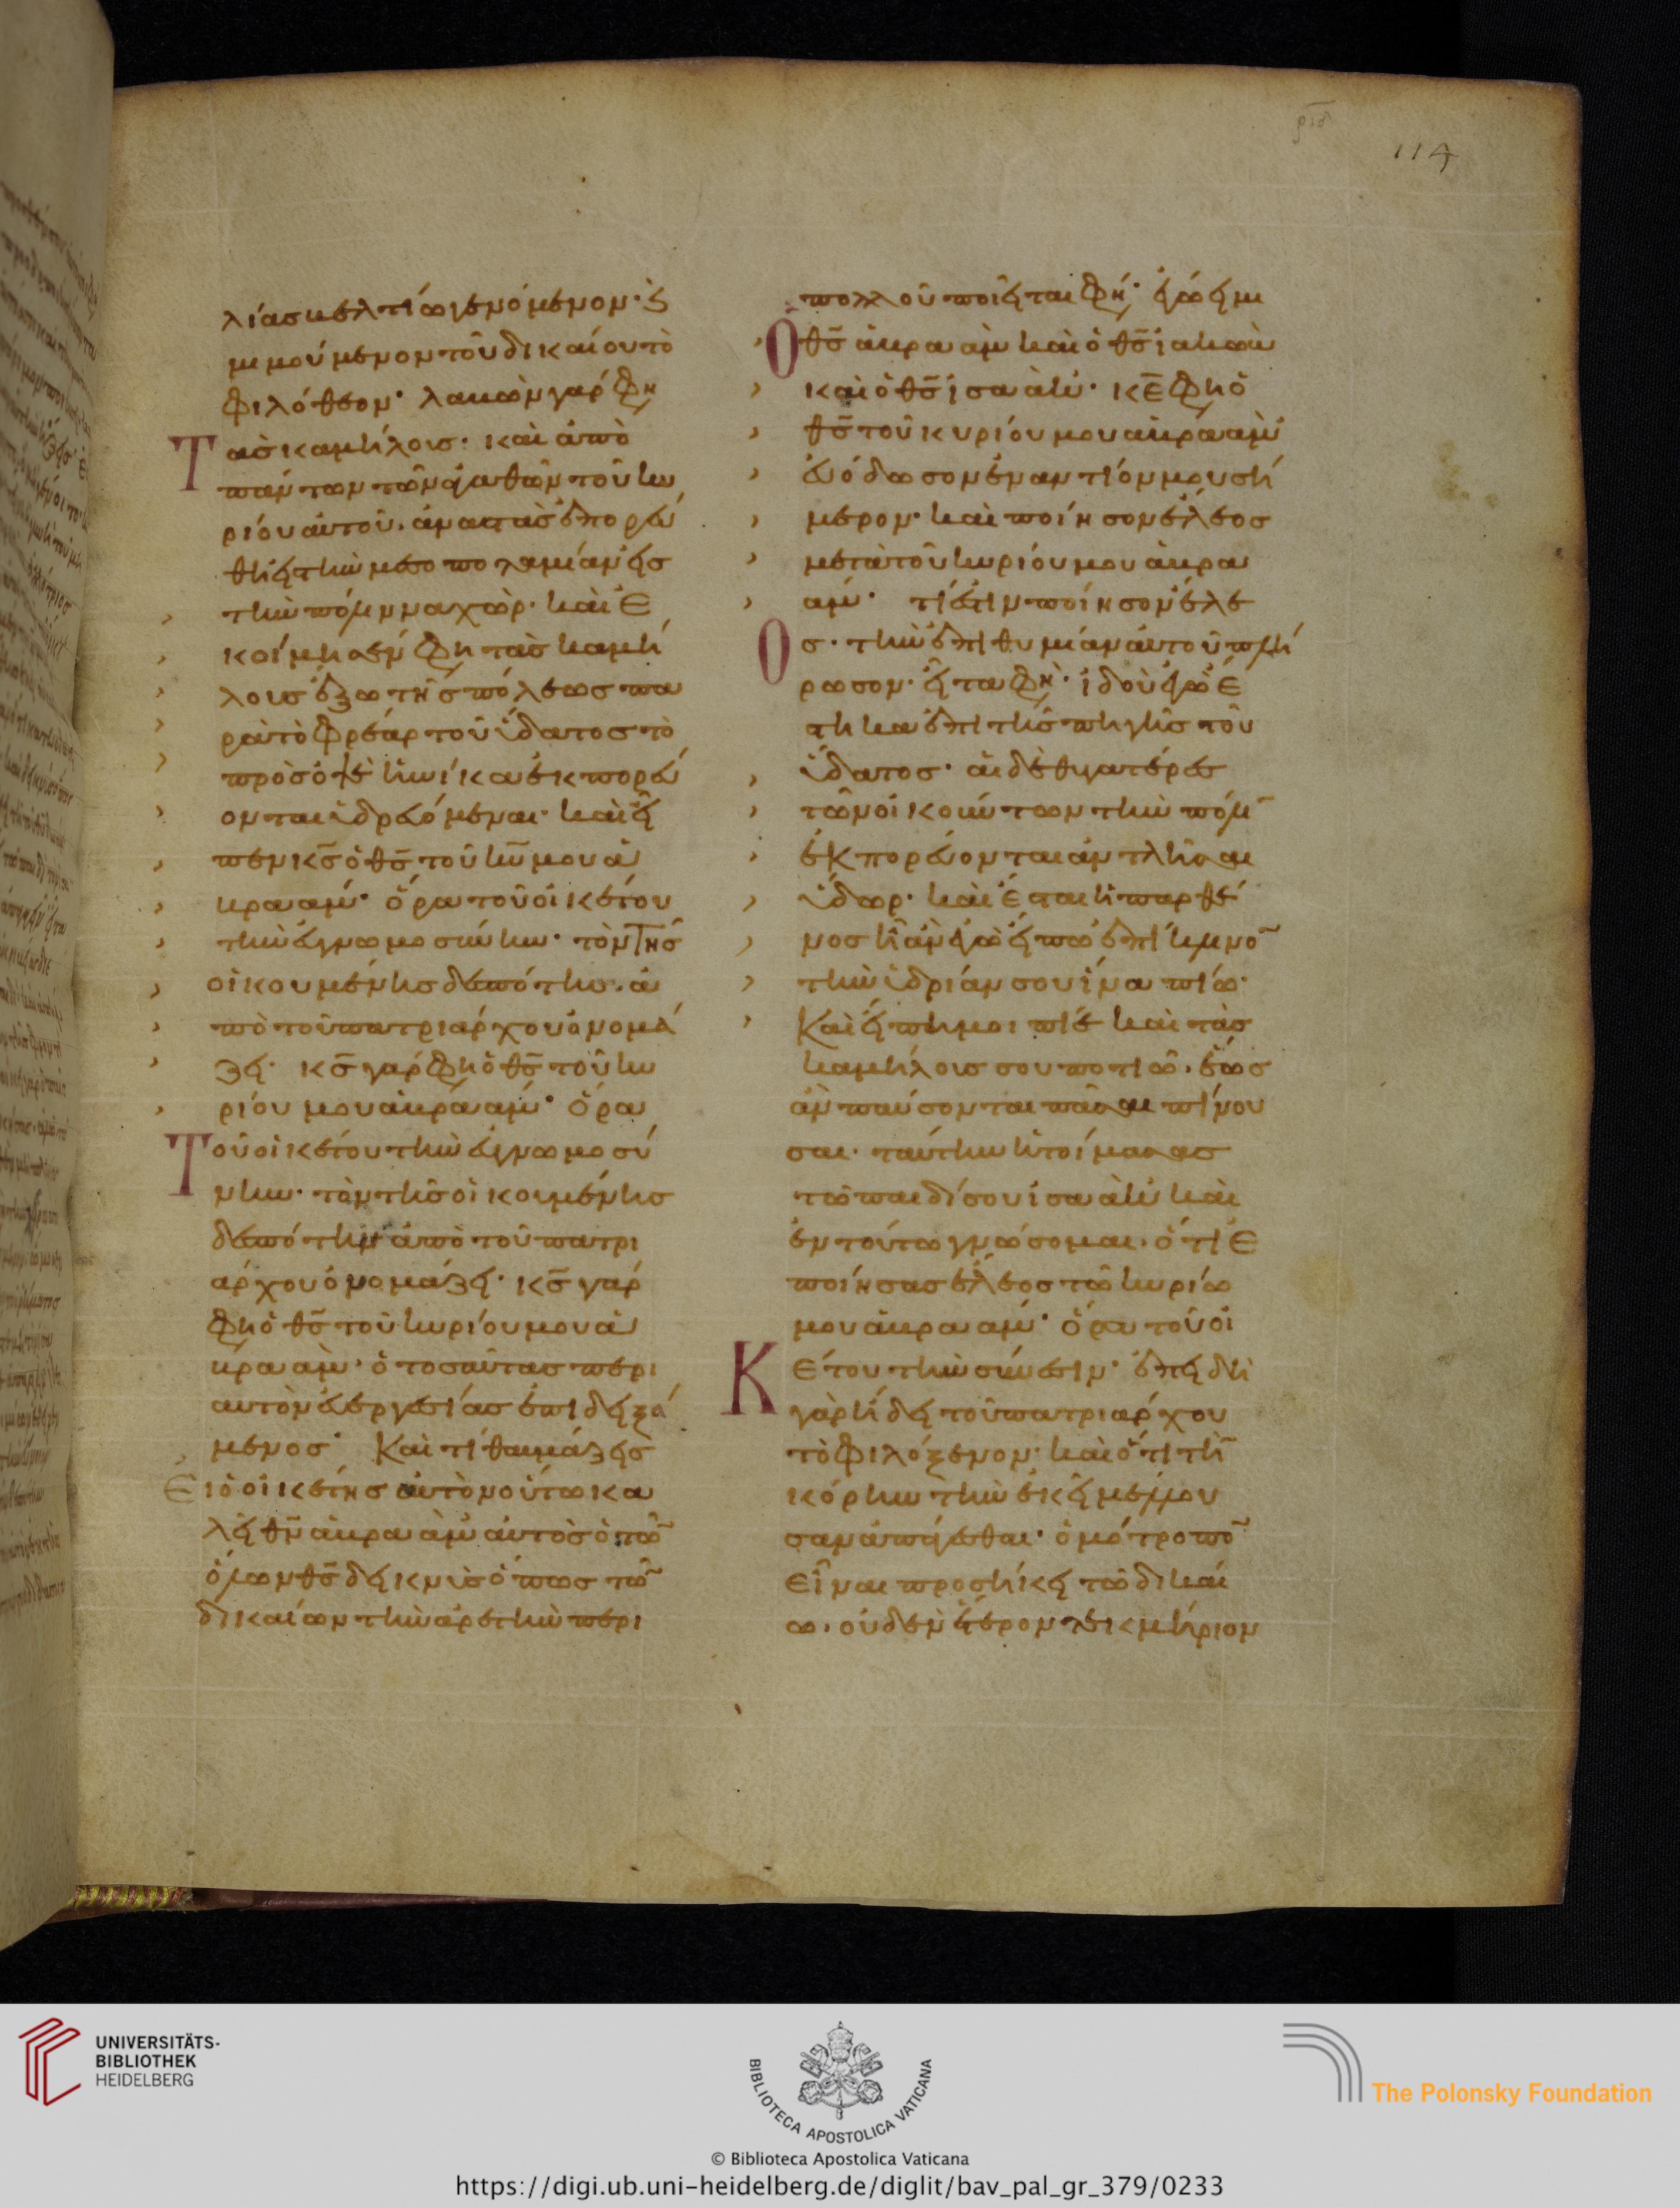 ριδ
114
λίας βελτίω γενόμενον· κ(αὶ)
μιμούμενον τοῦ δικαίου τὸ
φιλόθεον· λαβὼν γάρ φη
Τὰς καμήλους· καὶ ἀπὸ
πάντων τῶν ἀγαθῶν τοῦ κυ
ρίου αὐτοῦ, ἀναστὰς ἐπορεύ
θη εἰς τὴν μεσοποταμίαν εἰς
τὴν πόλιν ναχώρ· καὶ ἐ
κοίμησέν φη τὰς καμή
λους ἔξω τῆς πόλεως πα
ρὰ τὸ φρέαρ τοῦ ὕδατος τὸ
πρὸς ὀψὲ ἡνίκα ἐκπορεύ
ονται ὑδρευόμεναι· καὶ εἶ
πεν κ̅ς̅ ὁ θ̅ς̅ τοῦ κ̅υ̅ μου ἀ
βραάμ· ὅρα τοῦ οἰκέτου
τὴν εὐγνωμοσύνην· τὸν τῆς
οἰκουμένης δεσπότην, ἀ
πὸ τοῦ πατριάρχου ὀνομά
ζει· κ̅ς̅ γάρ φη ὁ θ̅ς̅ τοῦ κυ
ρίου μου ἀβραάμ· ὅρα
Τοῦ οἰκέτου τὴν εὐγνωμοσύ
νην· τὸν τῆς οἰκουμένης
δεσπότην ἀπὸ τοῦ πατρι
άρχου ὀνομάζει· κ̅ς̅ γάρ
φη ὁ θ̅ς̅ τοῦ κυρίου μου ἀ
βραάμ· ὁ τοσαύτας περι
αὐτὸν εὐεργεσίας ἐπιδειξά
μενος· Καὶ τί θαυμάζεις
Ει ὁ οἰκέτης αὐτὸν οὕτω κα
λεῖ θ̅ν̅ ἀβραὰμ αὐτὸς ὁ τῶ̅
ὅλων θ̅ς̅ δεικνὺς ὅπως τῶ̅
δικαίων τὴν ἀρετὴν περι
πολλοῦ ποιεῖται φη· ἐγώ εἰμι
Ὁ θ̅ς̅ ἀβραὰμ καὶ ὁ θ̅ς̅ ἰακὼβ
καὶ ὁ θ̅ς̅ ἰσαάκ· κ̅ε̅ φη ὁ
θ̅ς̅ τοῦ κυρίου μου ἀβραάμ
εὐόδωσον ἐναντίον μου σή
μερον· καὶ ποίησον ἔλεος
μετὰ τοῦ κυρίου μου ἀβρα
άμ· τί ἐστιν ποίησον ἔλε
Ος· τὴν ἐπιθυμίαν αὐτοῦ πλή
ρωσον· εἶτα φη· ἰδοὺ ἐγὼ ἕ
στηκα ἐπὶ τῆς πηγῆς τοῦ
ὕδατος· αἱ δὲ θυγατέρες
τῶν οἰκούντων τὴν πόλι̅
ἐκπορεύονται ἀντλῆσαι
ὕδωρ· καὶ ἔσται ἡ παρθέ
νος ἧ ἂν ἐγὼ εἴπω ἐπίκλινο̅
τὴν ὑδρίαν σου ἵνα πίω·
Καὶ εἴπη μοι πίε καὶ τὰς
καμήλους σου ποτιῶ, ἕως
ἂν παύσονται πᾶσαι πίνου
σαι· ταύτην ἡτοίμασας
τῶ παιδί σου ἰσαὰκ καὶ
ἐν τούτω γνώσομαι, ὅτι ἐ
ποίησας ἔλεος τῶ κυρίω
μου ἀβραάμ· ὅρα τοῦ οἰ
Κέτου τὴν σύνεσιν· ἐπειδὴ
γὰρ ἤδει τοῦ πατριάρχου
τὸ φιλόξενον· καὶ ὅτι τὴ̅
κόρην τὴν ἐκεῖ μέλλου
σαν ἀπάγεσθαι· ὁμότροπο̅
εἶναι προσήκει τῶ δικαί
ω, οὐδὲν ἕτερον τεκμήριον
UNIVERSITÄTS-
BIBLIOTHEK
HEIDELBERG
BIBLIOTECA APOSTOLICA VATICANA
The Polonsky Foundation
© Biblioteca Apostolica Vaticana
https://digi.ub.uni-heidelberg.de/diglit/bav_pal_gr_379/0233